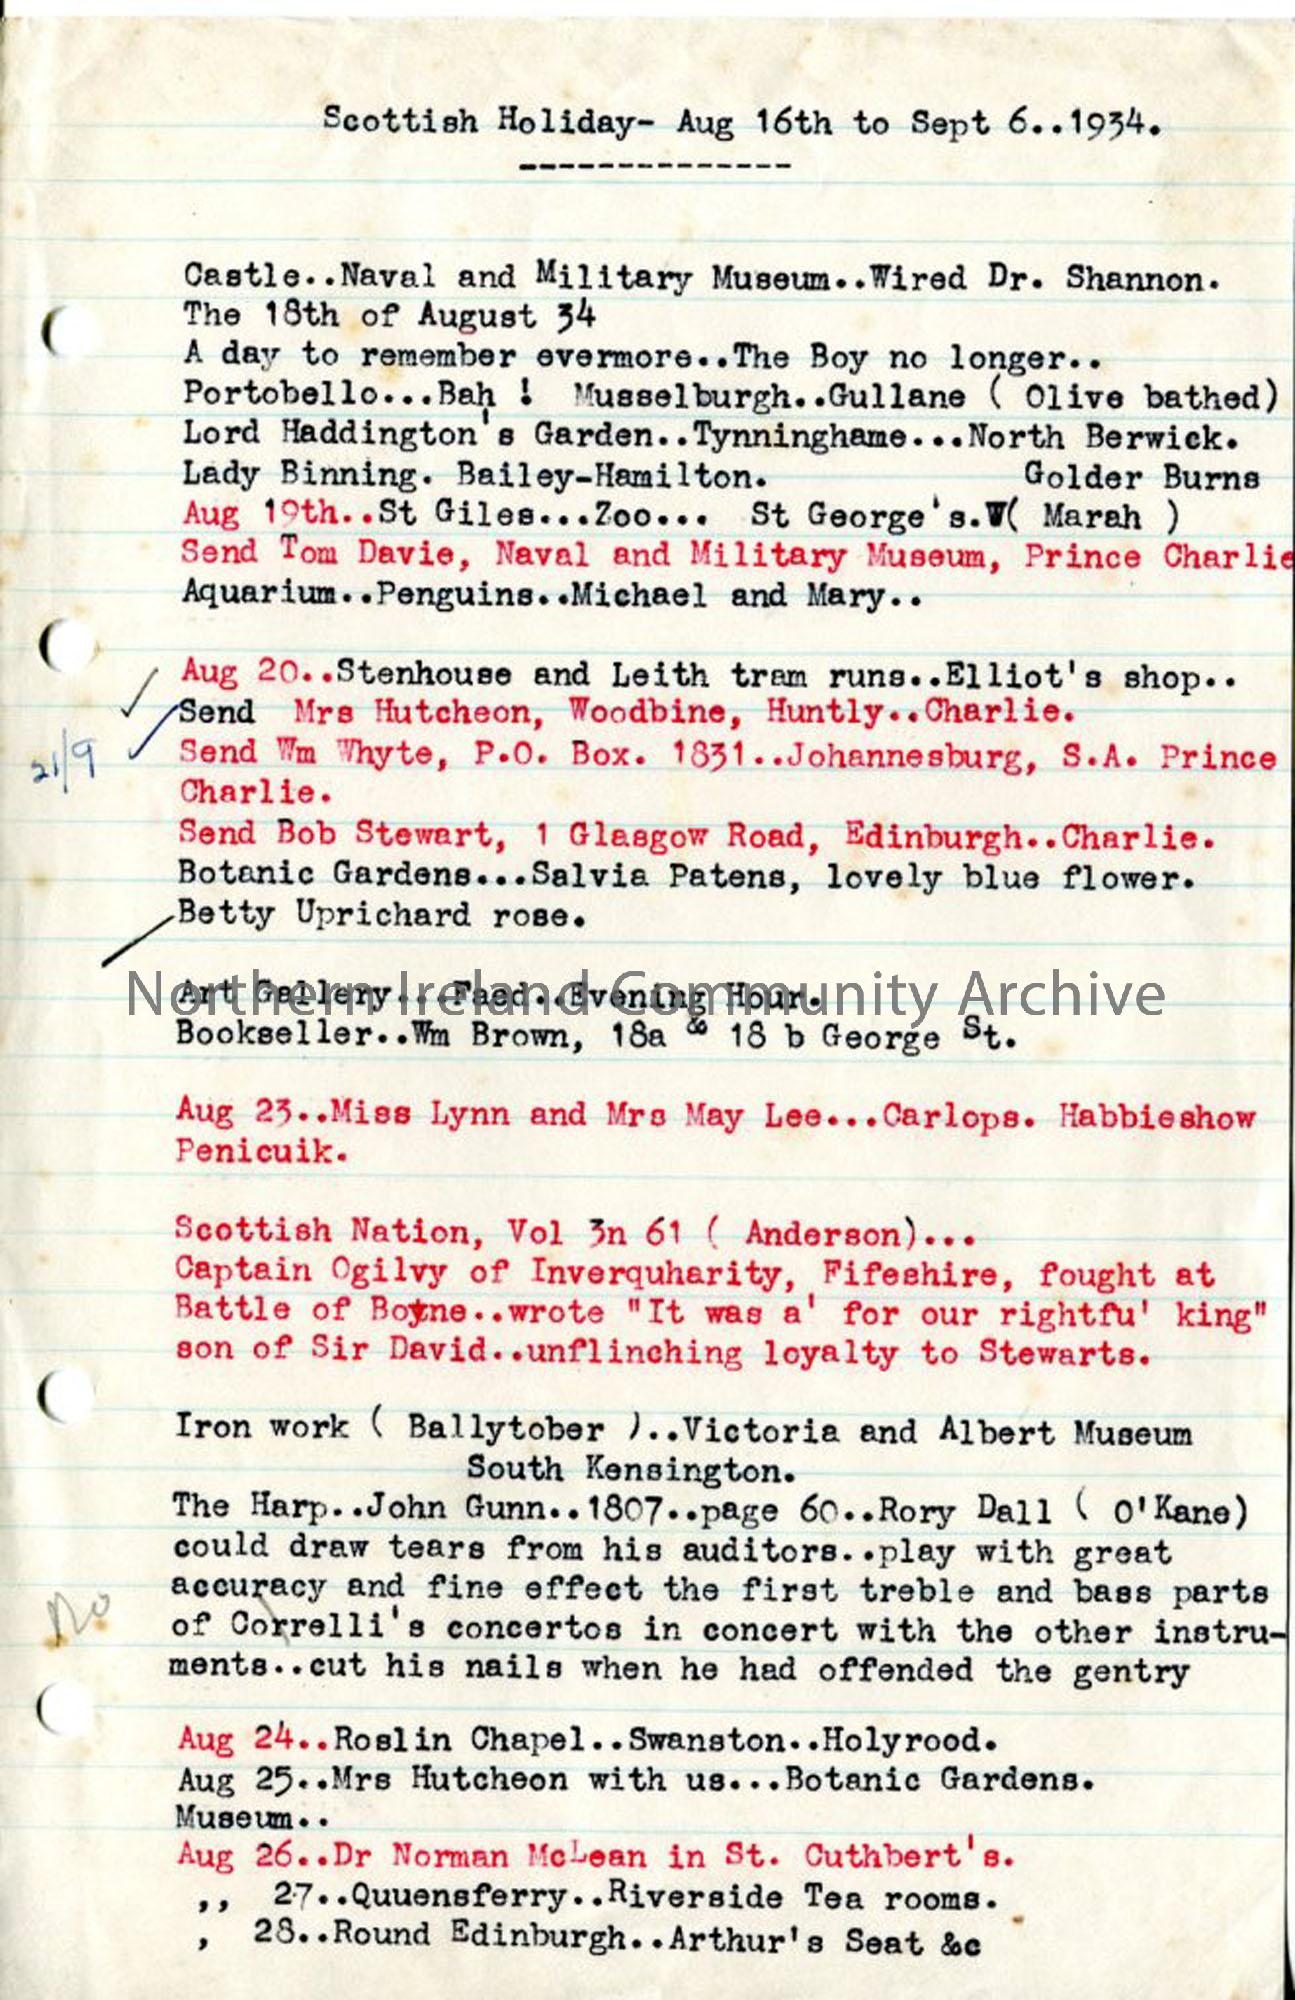 Scottish Holiday- Aug 16th to Sept 6..1934.
--------------
Castle..Naval and Military Museum..Wired Dr. Shannon.
The 18th of August 34
A day to remember evermore..The Boy no longer..
Portobello...Bah ! Musselburgh..Gullane ( Olive bathed)
Lord Haddington's Garden..Tynninghame...North Berwick.
Lady Binning. Bailey-Hamilton. Golder Burns
Aug 19th..St Giles...Zoo... St George's.W( Marah )
Send Tom Davie, Naval and Military Museum, Prince Charlie
Aquarium..Penguins..Michael and Mary..
Aug 20..Stenhouse and Leith tram runs..Elliot's shop..
Send Mrs Hutcheon, Woodbine, Huntly..Charlie.
21/9
Send Wm Whyte, P.O. Box. 1831..Johannesburg, S.A. Prince
Charlie.
Send Bob Stewart, 1 Glasgow Road, Edinburgh..Charlie.
Botanic Gardens...Salvia Patens, lovely blue flower.
Betty Uprichard rose.
Northern Ireland Community Archive
Art Gallery...Faed..Evening Hour.
Bookseller..Wm Brown, 18a & 18 b George St.
Aug 23..Miss Lynn and Mrs May Lee...Carlops. Habbieshow
Penicuik.
Scottish Nation, Vol 3n 61 ( Anderson)...
Captain Ogilvy of Inverquharity, Fifeshire, fought at
Battle of Boyne..wrote "It was a' for our rightfu' king"
son of Sir David..unflinching loyalty to Stewarts.
Iron work ( Ballytober )..Victoria and Albert Museum
South Kensington.
The Harp..John Gunn..1807..page 60..Rory Dall ( O'Kane)
could draw tears from his auditors..play with great
accuracy and fine effect the first treble and bass parts
No
of Correlli's concertos in concert with the other instru-
ments..cut his nails when he had offended the gentry
Aug 24..Roslin Chapel..Swanston..Holyrood.
Aug 25..Mrs Hutcheon with us...Botanic Gardens.
Museum..
Aug 26..Dr Norman McLean in St. Cuthbert's.
,, 27..Quuensferry..Riverside Tea rooms.
, 28..Round Edinburgh..Arthur's Seat &c